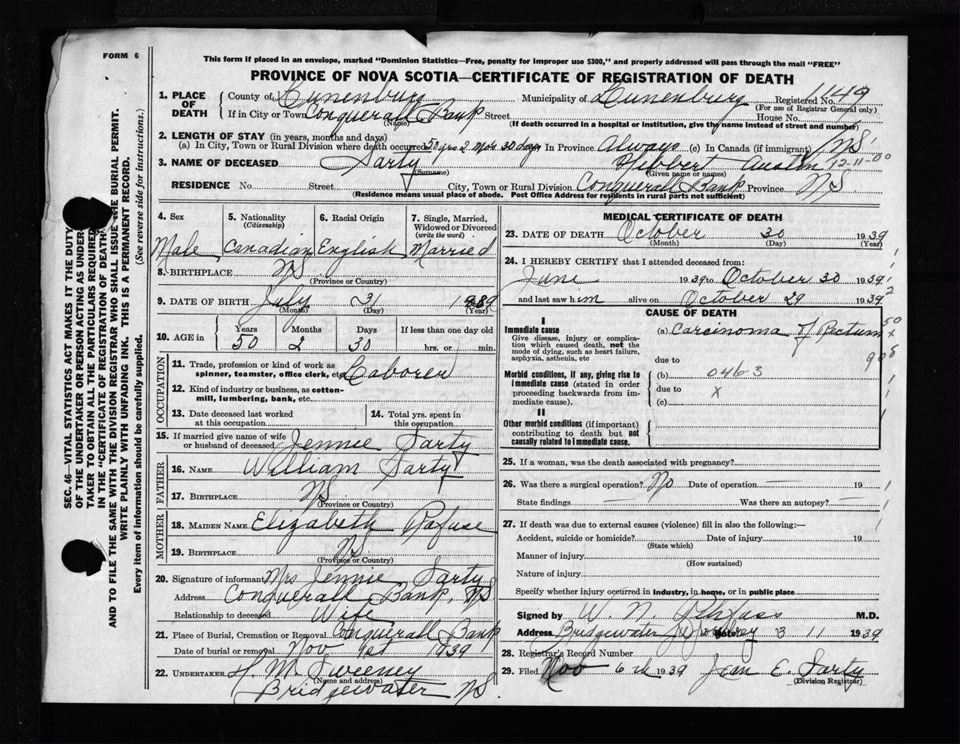 FORM 6
This form if placed in an envelope, marked "Dominion Statistics—Free, penalty for improper use $300," and properly addressed will pass through the mail "FREE"
PROVINCE OF NOVA SCOTIA—CERTIFICATE OF REGISTRATION OF DEATH
1. PLACE OF DEATH County of Lunenburg Municipality of Lunenburg Registered No. 1149
(For use of Registrar General only)
If in City or Town Conquerall Bank Street House No.
(Name) (If death occurred in a hospital or institution, give the name instead of street and number)
2. LENGTH OF STAY (in years, months and days)
(a) In City, Town or Rural Division where death occurred 50 yrs 2 mos 30 days In Province Always (c) In Canada (if immigrant) NS
3. NAME OF DECEASED Sarty Hibbert Austin 12-11-00
(Surname) (Given name or names)
RESIDENCE No. Street City, Town or Rural Division Conquerall Bank Province NS.
(Residence means usual place of abode. Post Office Address for residents in rural parts not sufficient)
4. Sex 5. Nationality (Citizenship) 6. Racial Origin 7. Single, Married, Widowed or Divorced (write the word)
Male Canadian English Married
8. BIRTHPLACE NS.
(Province or Country)
9. DATE OF BIRTH July 31
(Month) (Day) (Year)
10. AGE in Years Months Days If less than one day old
50 2 30 hrs. or min.
OCCUPATION
11. Trade, profession or kind of work as spinner, teamster, office clerk, etc. Laborer
12. Kind of industry or business, as cotton-mill, lumbering, bank, etc.
13. Date deceased last worked at this occupation
14. Total yrs. spent in this occupation
15. If married give name of wife or husband of deceased Jennie Sarty
FATHER
16. NAME William Sarty
17. BIRTHPLACE NS
(Province or Country)
MOTHER
18. MAIDEN NAME Elizabeth Rafuse
19. BIRTHPLACE NS
(Province or Country)
20. Signature of informant Mrs Jennie Sarty
Address Conquerall Bank, NS
Relationship to deceased Wife
21. Place of Burial, Cremation or Removal Conquerall Bank
Date of burial or removal Nov 1st 1939
22. UNDERTAKER H. M. Sweeney
(Name and address)
Bridgewater NS.
MEDICAL CERTIFICATE OF DEATH
23. DATE OF DEATH October 30 1939
(Month) (Day) (Year)
24. I HEREBY CERTIFY that I attended deceased from:
June 1939 to October 30 1939
and last saw him alive on October 29 1939
CAUSE OF DEATH
I
Immediate cause (a) Carcinoma of Rectum
Give disease, injury or complication which caused death, not the mode of dying, such as heart failure, asphyxia, asthenia, etc
due to
Morbid conditions, if any, giving rise to immediate cause (stated in order proceeding backwards from immediate cause).
(b) 0463
due to x
(c)
II
Other morbid conditions (if important) contributing to death but not causally related to immediate cause.
25. If a woman, was the death associated with pregnancy?
26. Was there a surgical operation? No Date of operation — 19
State findings — Was there an autopsy? —
27. If death was due to external causes (violence) fill in also the following:—
Accident, suicide or homicide? Date of injury 19
(State which)
Manner of injury
(How sustained)
Nature of injury
Specify whether injury occurred in Industry, in home, or in public place
Signed by W. N. M.D.
Address Bridgewater 3 11 1939
28. Registrar's Record Number
29. Filed Nov 6th 1939 Jean E. Sarty
(Division Registrar)
SEC. 46—VITAL STATISTICS ACT MAKES IT THE DUTY
OF THE UNDERTAKER OR PERSON ACTING AS UNDERTAKER TO OBTAIN ALL THE PARTICULARS REQUIRED
IN THE "CERTIFICATE OF REGISTRATION OF DEATH"
AND TO FILE THE SAME WITH THE DIVISION REGISTRAR WHO SHALL ISSUE THE BURIAL PERMIT.
WRITE PLAINLY WITH UNFADING INK. THIS IS A PERMANENT RECORD.
Every item of information should be carefully supplied. (See reverse side for instructions.)